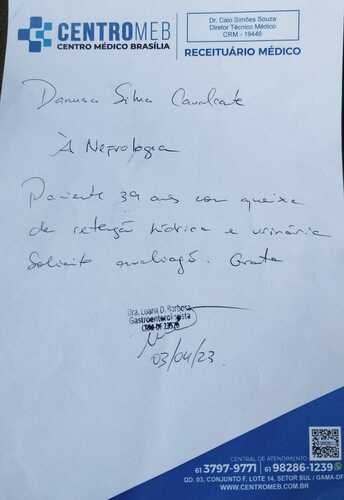 CENTROMEB
CENTRO MÉDICO BRASÍLIA
Dr. Caio Simões Souza
Diretor Técnico Médico
CRM - 19449
RECEITUÁRIO MÉDICO
Danusa Silva Cavalcante
À Nefrologia
Paciente 39 anos com queixa
de retenção hídrica e urinária
Solicito avaliação. Grata
Dra. Luana D. Barbosa
Gastroenterologista
CRM-DF
03/04/23.
CENTRAL DE ATENDIMENTO
61 3797-9771 61 98286-1239
QD. 03, CONJUNTO F, LOTE 14, SETOR SUL / GAMA-DF
WWW.CENTROMEB.COM.BR